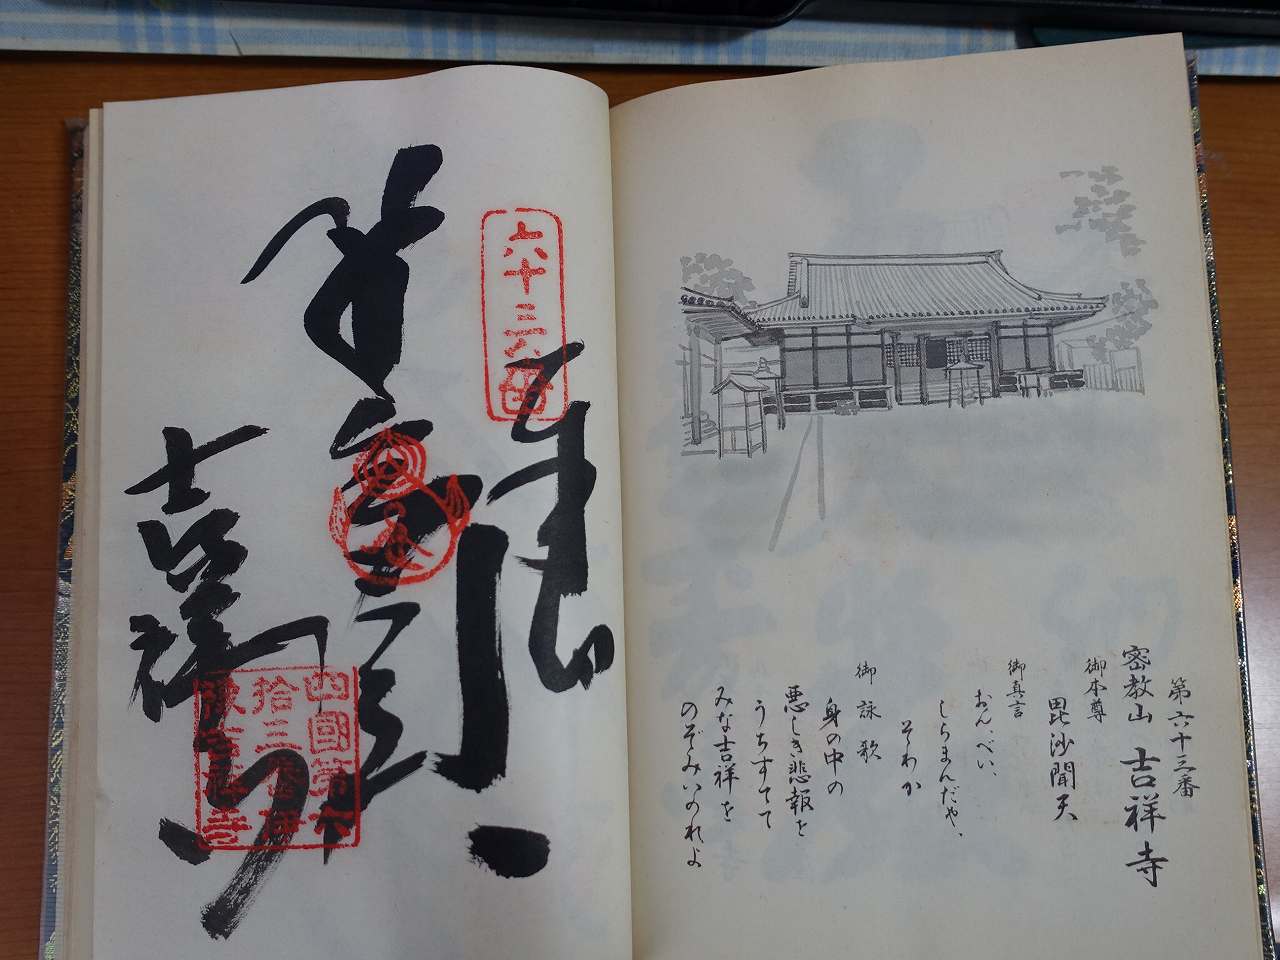 第六十三番
密教山 吉祥寺
御本尊
毘沙聞天
御真言
おん、べい、
しらまんだや、
そわか
御詠歌
身の中の
悪しき悲報を
うちすてて
みな吉祥を
のぞみいのれよ
六十三番
奉
吉祥寺
四國第六
拾三番